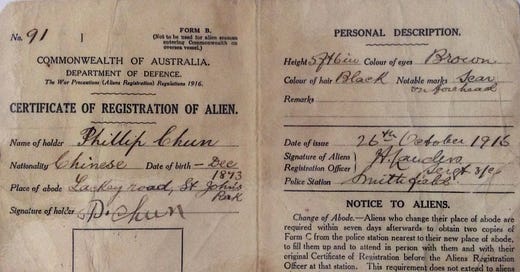 No. 91
FORM B.
(Not to be used for alien seamen
entering Commonwealth on
oversea vessel.)
COMMONWEALTH OF AUSTRALIA.
DEPARTMENT OF DEFENCE.
The War Precautions (Aliens Registration) Regulations 1916.
CERTIFICATE OF REGISTRATION OF ALIEN.
Name of holder Phillip Chun
Nationality Chinese Date of birth – Dec
1893
Place of abode Lackey road, St Johns
Park
Signature of holder P. Chun
PERSONAL DESCRIPTION.
Height 5ft 6in Colour of eyes Brown
Colour of hair Black Notable marks Scar
on forehead
Remarks
Date of issue 26th October 1916
Signature of Aliens
Registration Officer Sergt 3/c
Police Station Smithfield
NOTICE TO ALIENS.
Change of Abode.—Aliens who change their place of abode are
required within seven days afterwards to obtain two copies of
Form C from the police station nearest to their new place of abode,
to fill them up and to attend in person with them and with their
original Certificate of Registration before the Aliens Registration
Officer at that station. This requirement does not extend to aliens